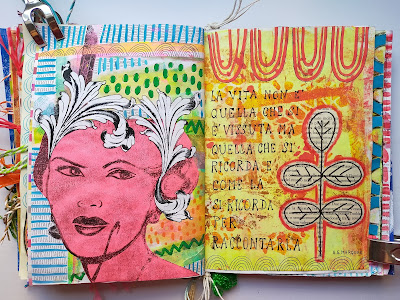 LA VITA NON È
QUELLA CHE SI
È VISSUTA MA
QUELLA CHE SI
RICORDA E
COME LA
SI RICORDA
PER
RACCONTARLA
G.G. MARQUEZ